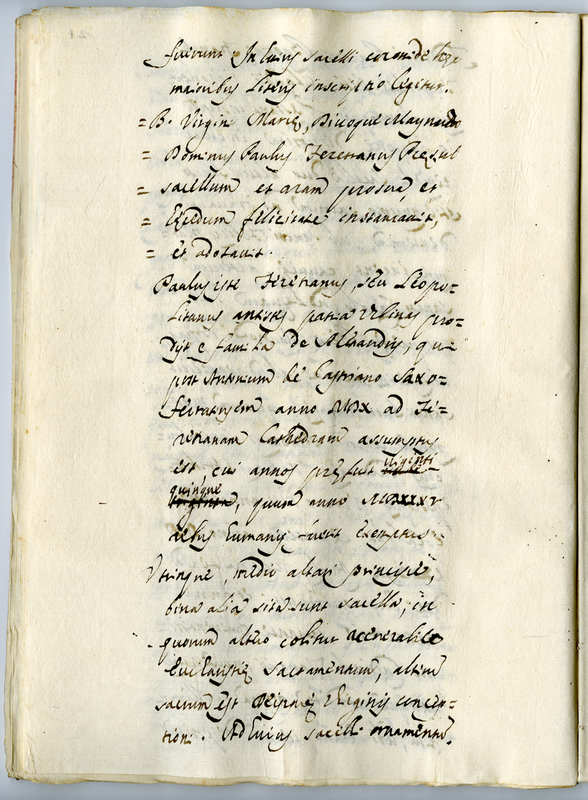 fuerunt. In huius sacelli coronide hęc
maioribus literis inscriptio legitur.
= B. Virgini Marię, Divoque Maynardo
= Dominus Paulus Feretranus Pręsul
= sacellum et aram prosua, et
= Hęredum felicitate instauravit,
= et adotavit.
Paulus iste Feretranus, seu Leopo=
litanus antistes patria Urbinas pro=
dijt e familia de Alexandris, qui
post Antonium de Castriano Saxo=
feratensem anno MDX ad Fe=
retranam Cathedram assumptus
est cui annos pręfuit viginti
quinque, quum anno MDXXXV
rebus humanis fuerit exemptus.
Utrinque, medio altari principe,
bina alia sita sunt sacella, in
quorum altero colitur venerabile
Eucharistię sacramentum, alterum
sacrum est Deiparę Virginis concep=
tioni. Ad huius sacelli ornamentum,